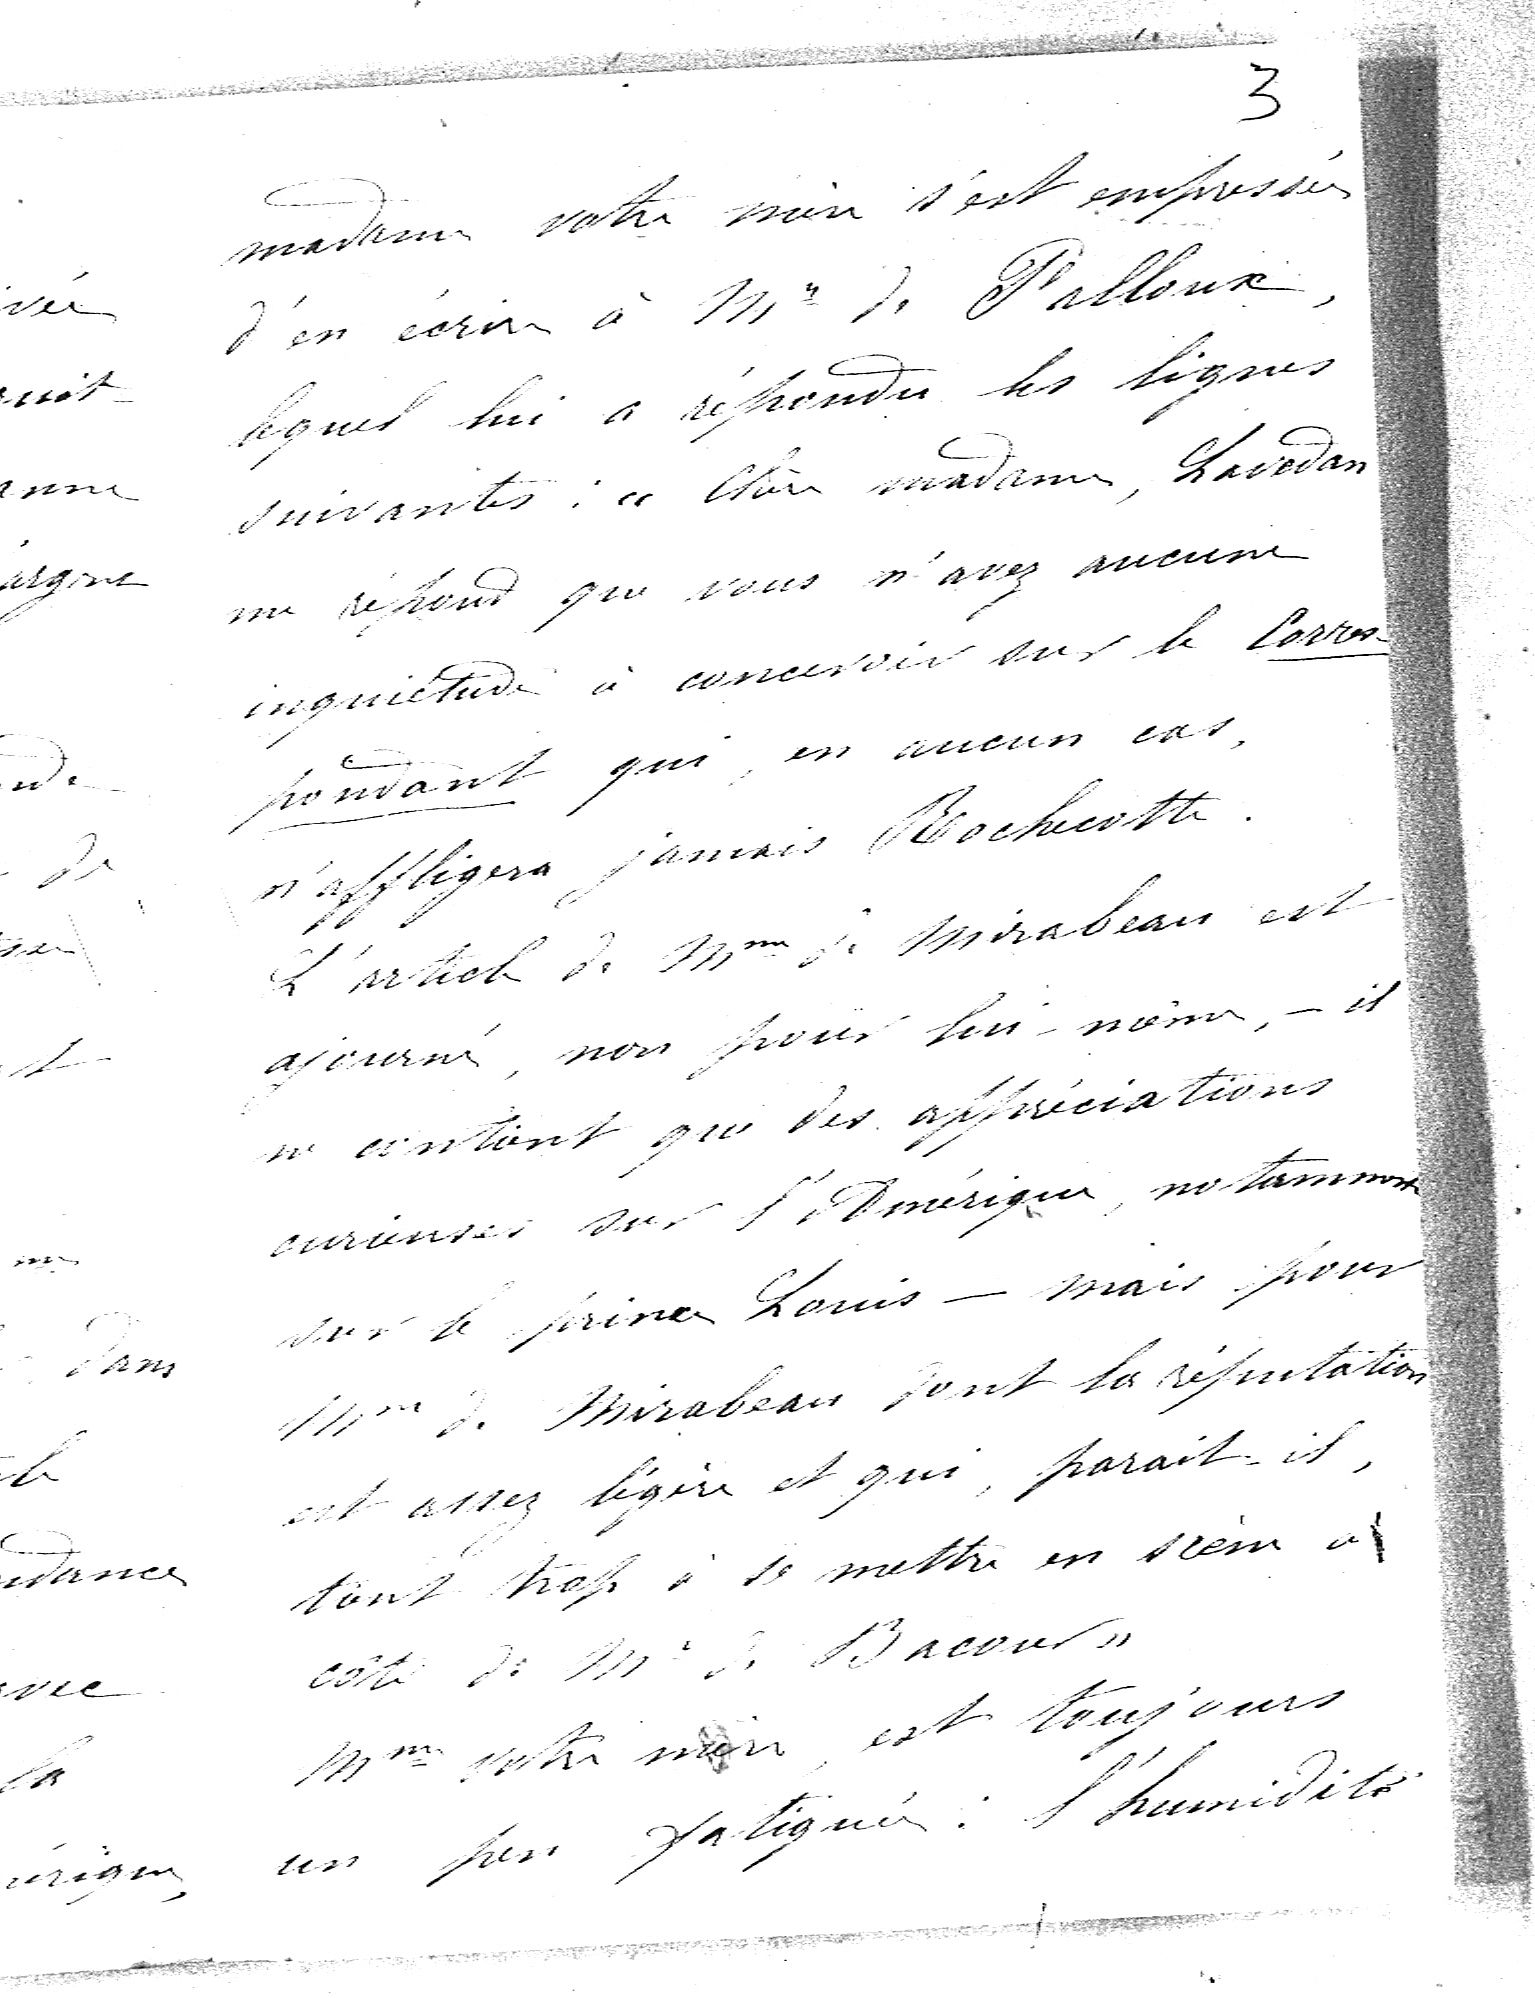 3
madame votre mère s'est empressée
d'en écrire à Mr de Falloux,
lequel lui a répondu les lignes
suivantes : « Chère madame, Lavedan
me répond que vous n'avez aucune
inquiétude à concevoir sur le Corres-
pondant qui, en aucun cas,
n'affligera jamais Rochecotte.
L'article de Mme de Mirabeau est
ajourné, non pour lui-même, — il
ne contient que des appréciations
curieuses sur l'Amérique, notamment
sur le prince Louis — mais pour
Mme de Mirabeau dont la réputation
est assez légère et qui, parait-il,
tient trop à se mettre en scène à
côté de Mr de Bacourt »
Mme votre mère est toujours
un peu fatiguée : l'humidité
dans
avec
la